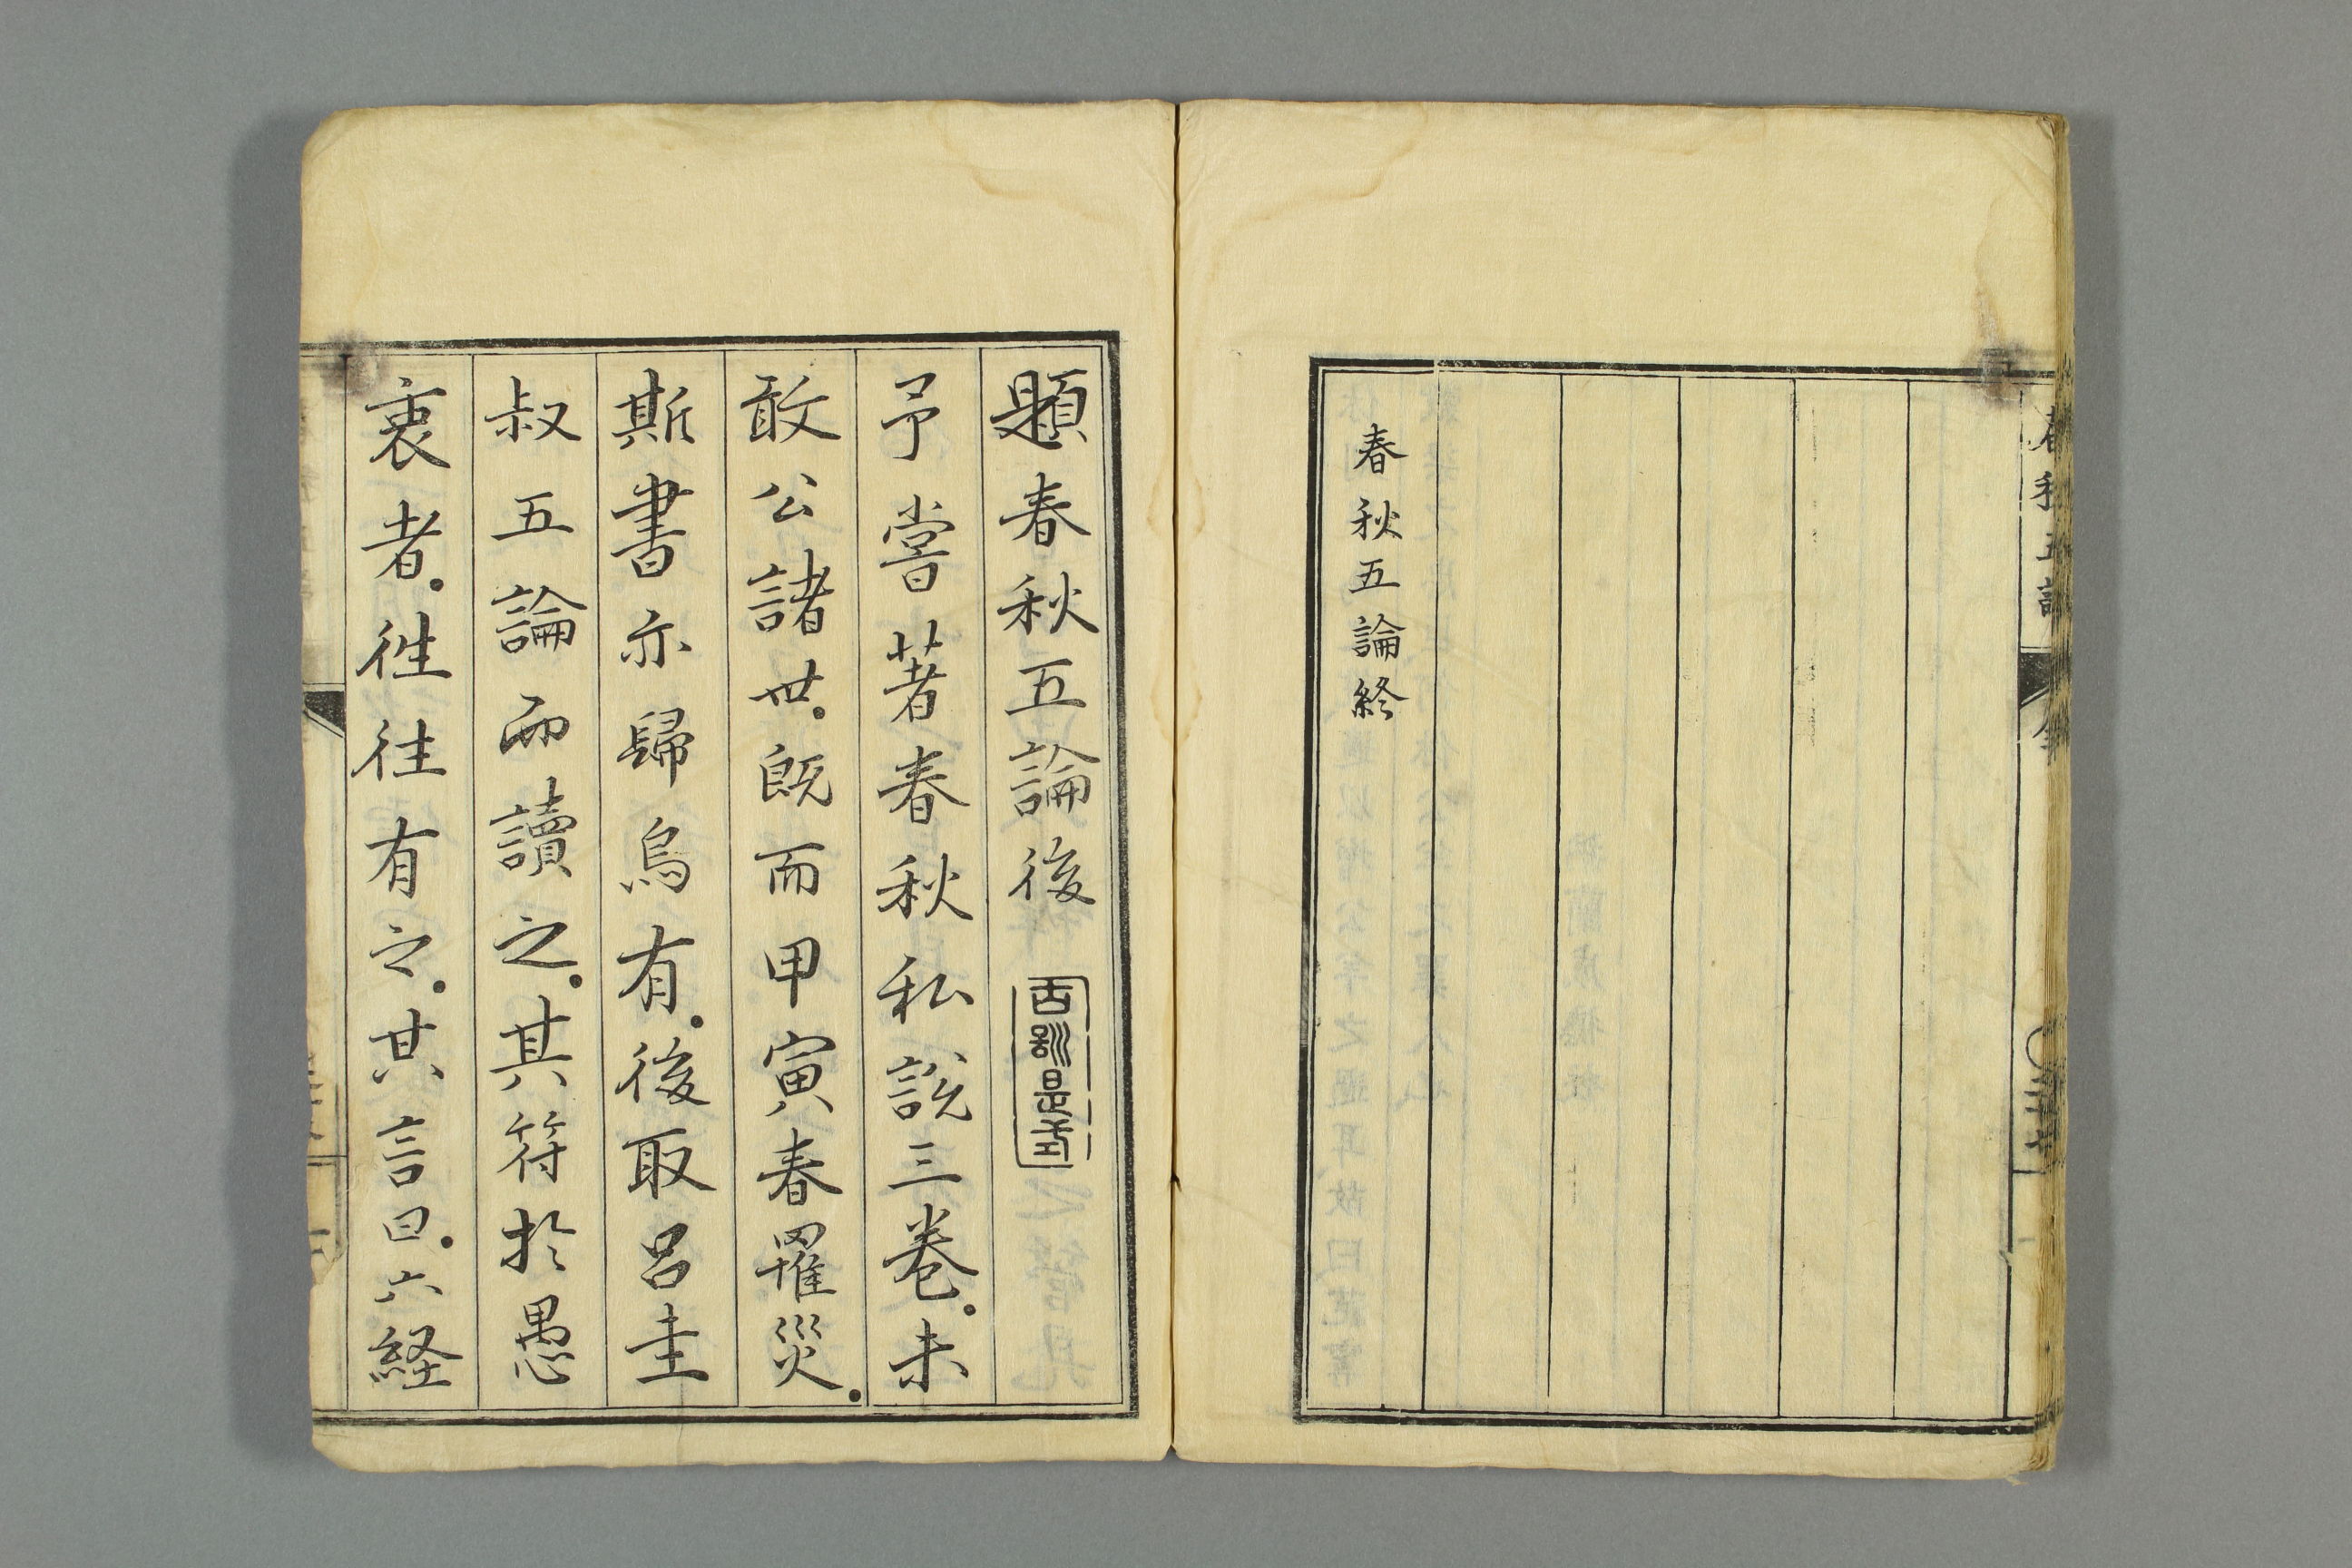 春秋五論終
題春秋五論後
予嘗著春秋私說三卷。未
敢公諸世。既而甲寅春罹災。
斯書亦歸烏有。後取呂圭
叔五論而讀之。其符於愚
衷者。徃往有之。其言曰。六経